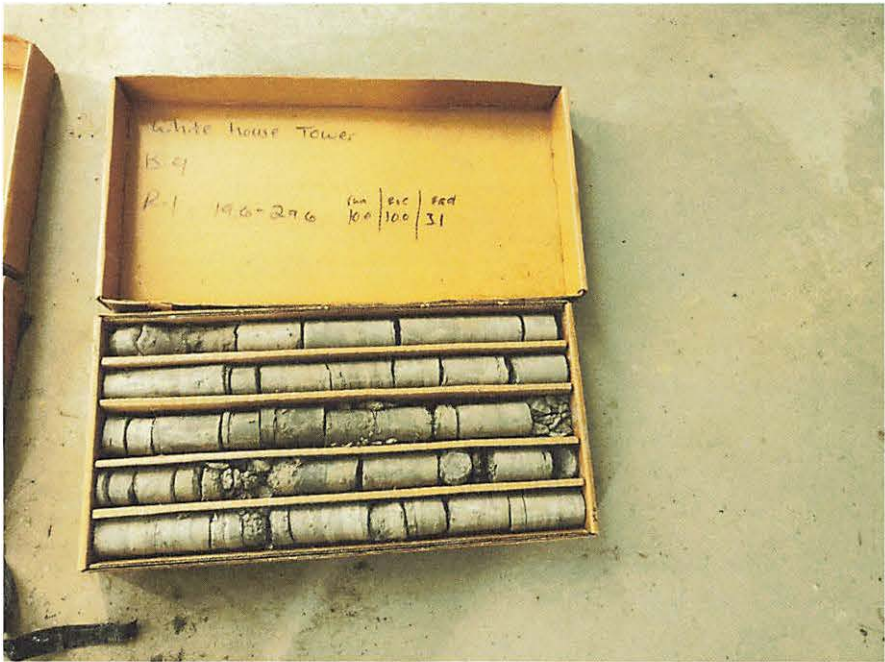 White House Tower
B-4
R-1 19.6-29.6 run | rec | rqd
10.0 | 10.0 | 31